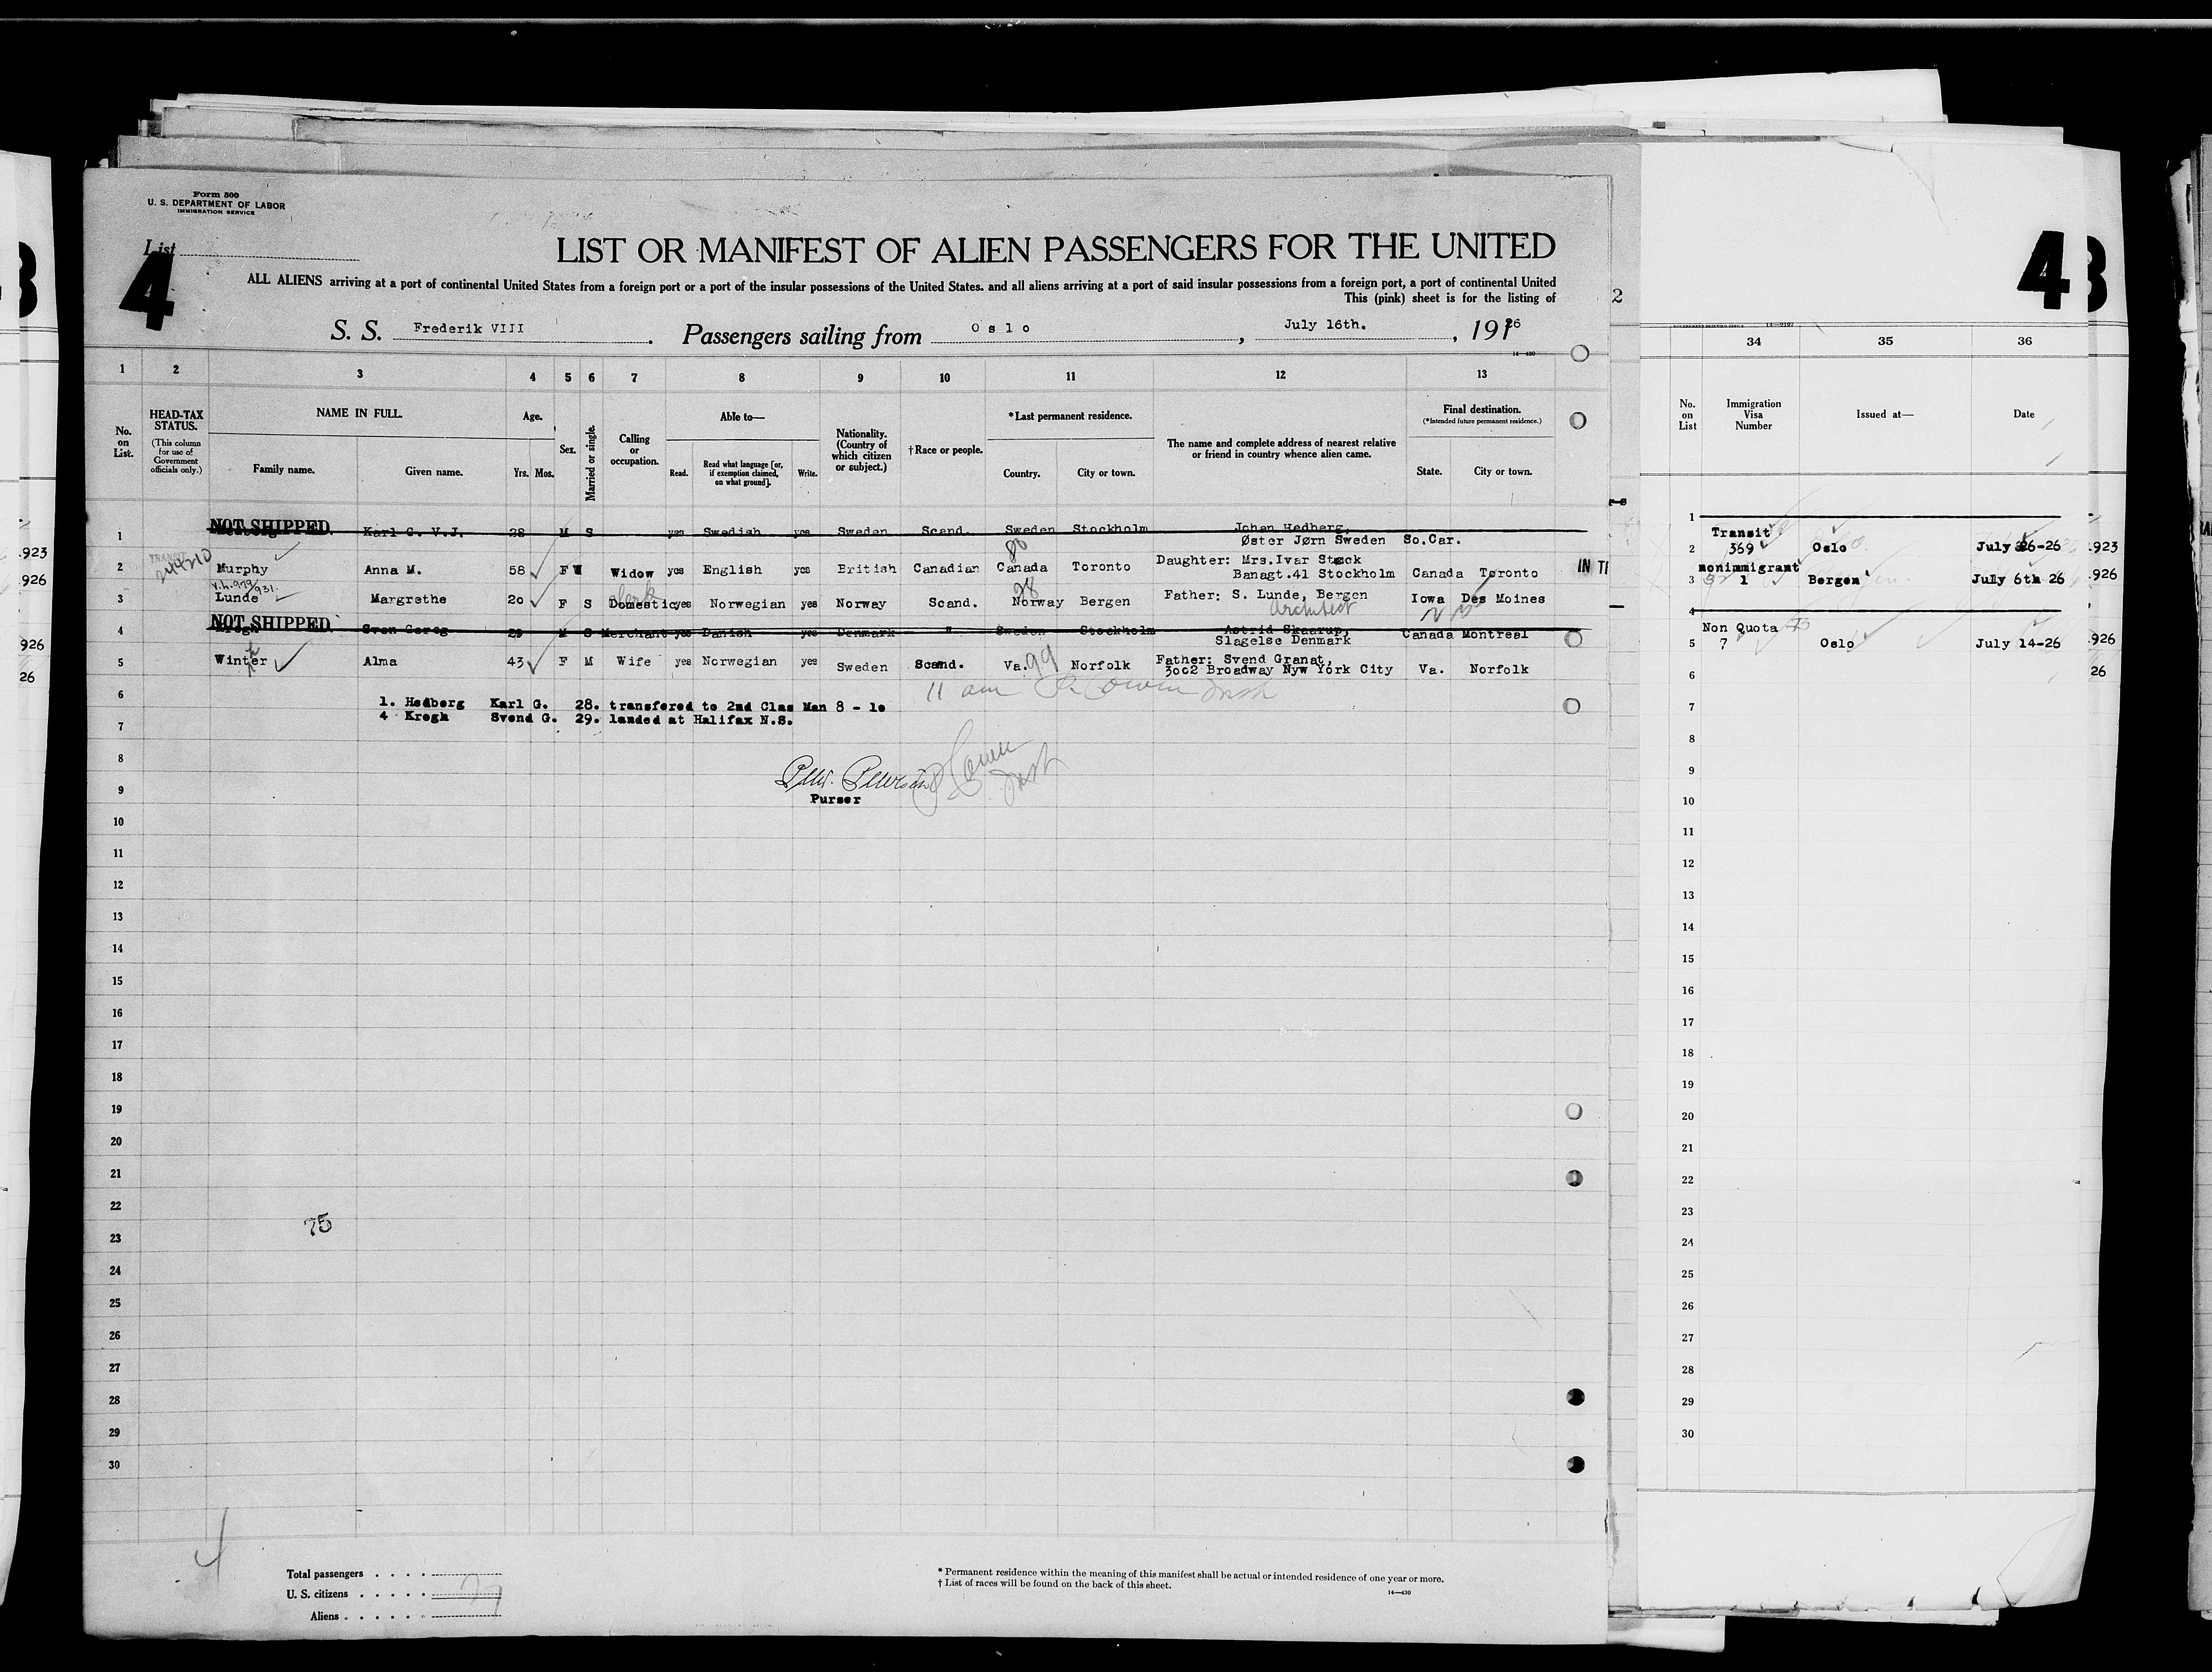 Form 500
U. S. DEPARTMENT OF LABOR
IMMIGRATION SERVICE
List
4
LIST OR MANIFEST OF ALIEN PASSENGERS FOR THE UNITED
ALL ALIENS arriving at a port of continental United States from a foreign port or a port of the insular possessions of the United States, and all aliens arriving at a port of said insular possessions from a foreign port, a port of continental United
This (pink) sheet is for the listing of
S. S. Frederik VIII . Passengers sailing from Oslo , July 16th. , 1926
1 2 3 4 5 6 7 8 9 10 11 12 13
No. on List.
HEAD-TAX STATUS.
(This column for use of Government officials only.)
NAME IN FULL.
Family name. Given name.
Age.
Yrs. Mos.
Sex.
Married or single.
Calling or occupation.
Able to—
Read. Read what language [or, if exemption claimed, on what ground]. Write.
Nationality. (Country of which citizen or subject.)
†Race or people.
*Last permanent residence.
Country. City or town.
The name and complete address of nearest relative or friend in country whence alien came.
Final destination.
(*Intended future permanent residence.)
State. City or town.
1 NOT SHIPPED Karl G. V.J. 28 M S yes Swedish yes Sweden Scand. Sweden Stockholm Johan Hedberg,
Øster Jørn Sweden So.Car.
TRANSIT
2 Murphy Anna M. 58 F W Widow yes English yes British Canadian Canada Toronto Daughter: Mrs.Ivar Stack
Banagt.41 Stockholm Canada Toronto
IN TR
3 Lunde Margrethe 20 F S Domestic yes Norwegian yes Norway Scand. Norway Bergen Father: S. Lunde, Bergen Iowa Des Moines
Clerk
28
Architect
4 NOT SHIPPED Krogh Sven Georg 29 M S Merchant yes Danish yes Denmark " Sweden Stockholm Astrid Skaarup,
Slagelse Denmark Canada Montreal
5 Winter Alma 43 F M Wife yes Norwegian yes Sweden Scand. Va. 99 Norfolk Father: Svend Granat,
3oc2 Broadway Nyw York City Va. Norfolk
6
11 am
1. Hedberg Karl G. 28. transfered to 2nd Clas Man 8 - 1o
4 Krogh Svend G. 29. landed at Halifax N.S.
7
8
9
Purser
10
11
12
13
14
15
16
17
18
19
20
21
22
75
23
24
25
26
27
28
29
30
4
Total passengers
U. S. citizens
Aliens
* Permanent residence within the meaning of this manifest shall be actual or intended residence of one year or more.
† List of races will be found on the back of this sheet.
14—430
2
43
34 35 36
No. on List
Immigration Visa Number
Issued at—
Date
1
Transit
2 369 Oslo July 26-26
nonimmigrant
3 1 Bergen July 6th 26
4
Non Quota
5 7 Oslo July 14-26
6
7
8
9
10
11
12
13
14
15
16
17
18
19
20
21
22
23
24
25
26
27
28
29
30
3
.923
.926
926
26
.923
.926
.926
26